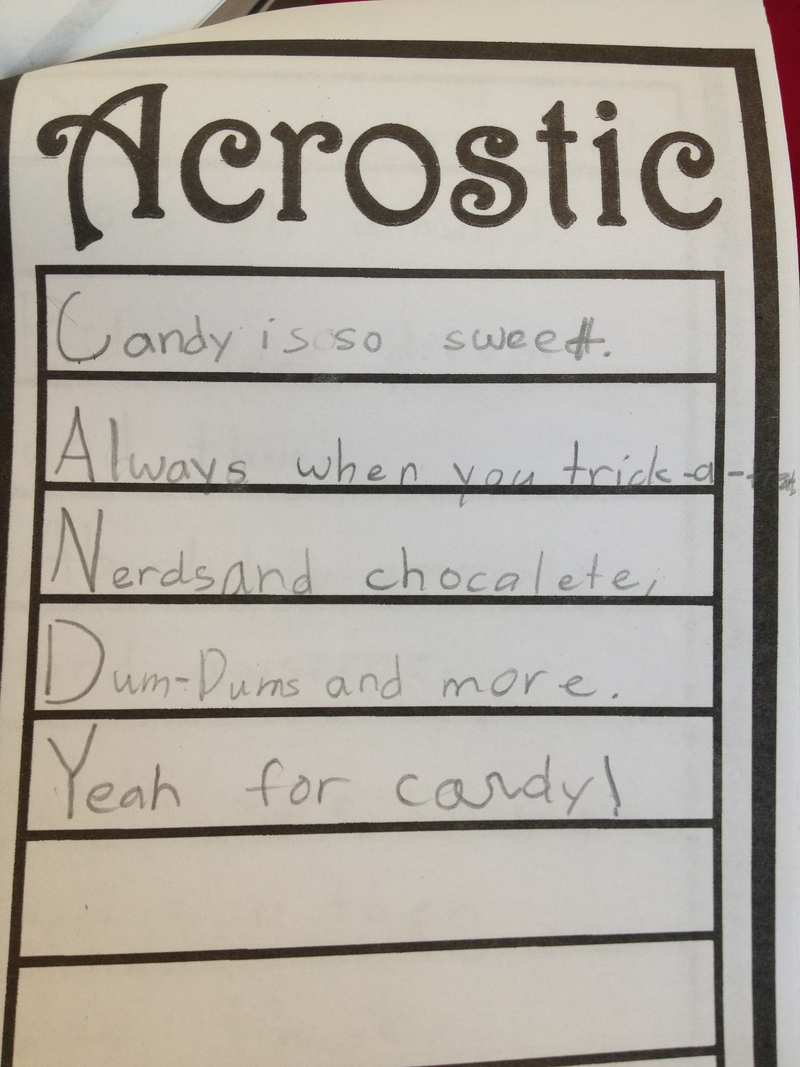 Acrostic
Candy is so sweet.
Always when you trick-a-treat
Nerds and chocalete,
Dum-Dums and more.
Yeah for candy!